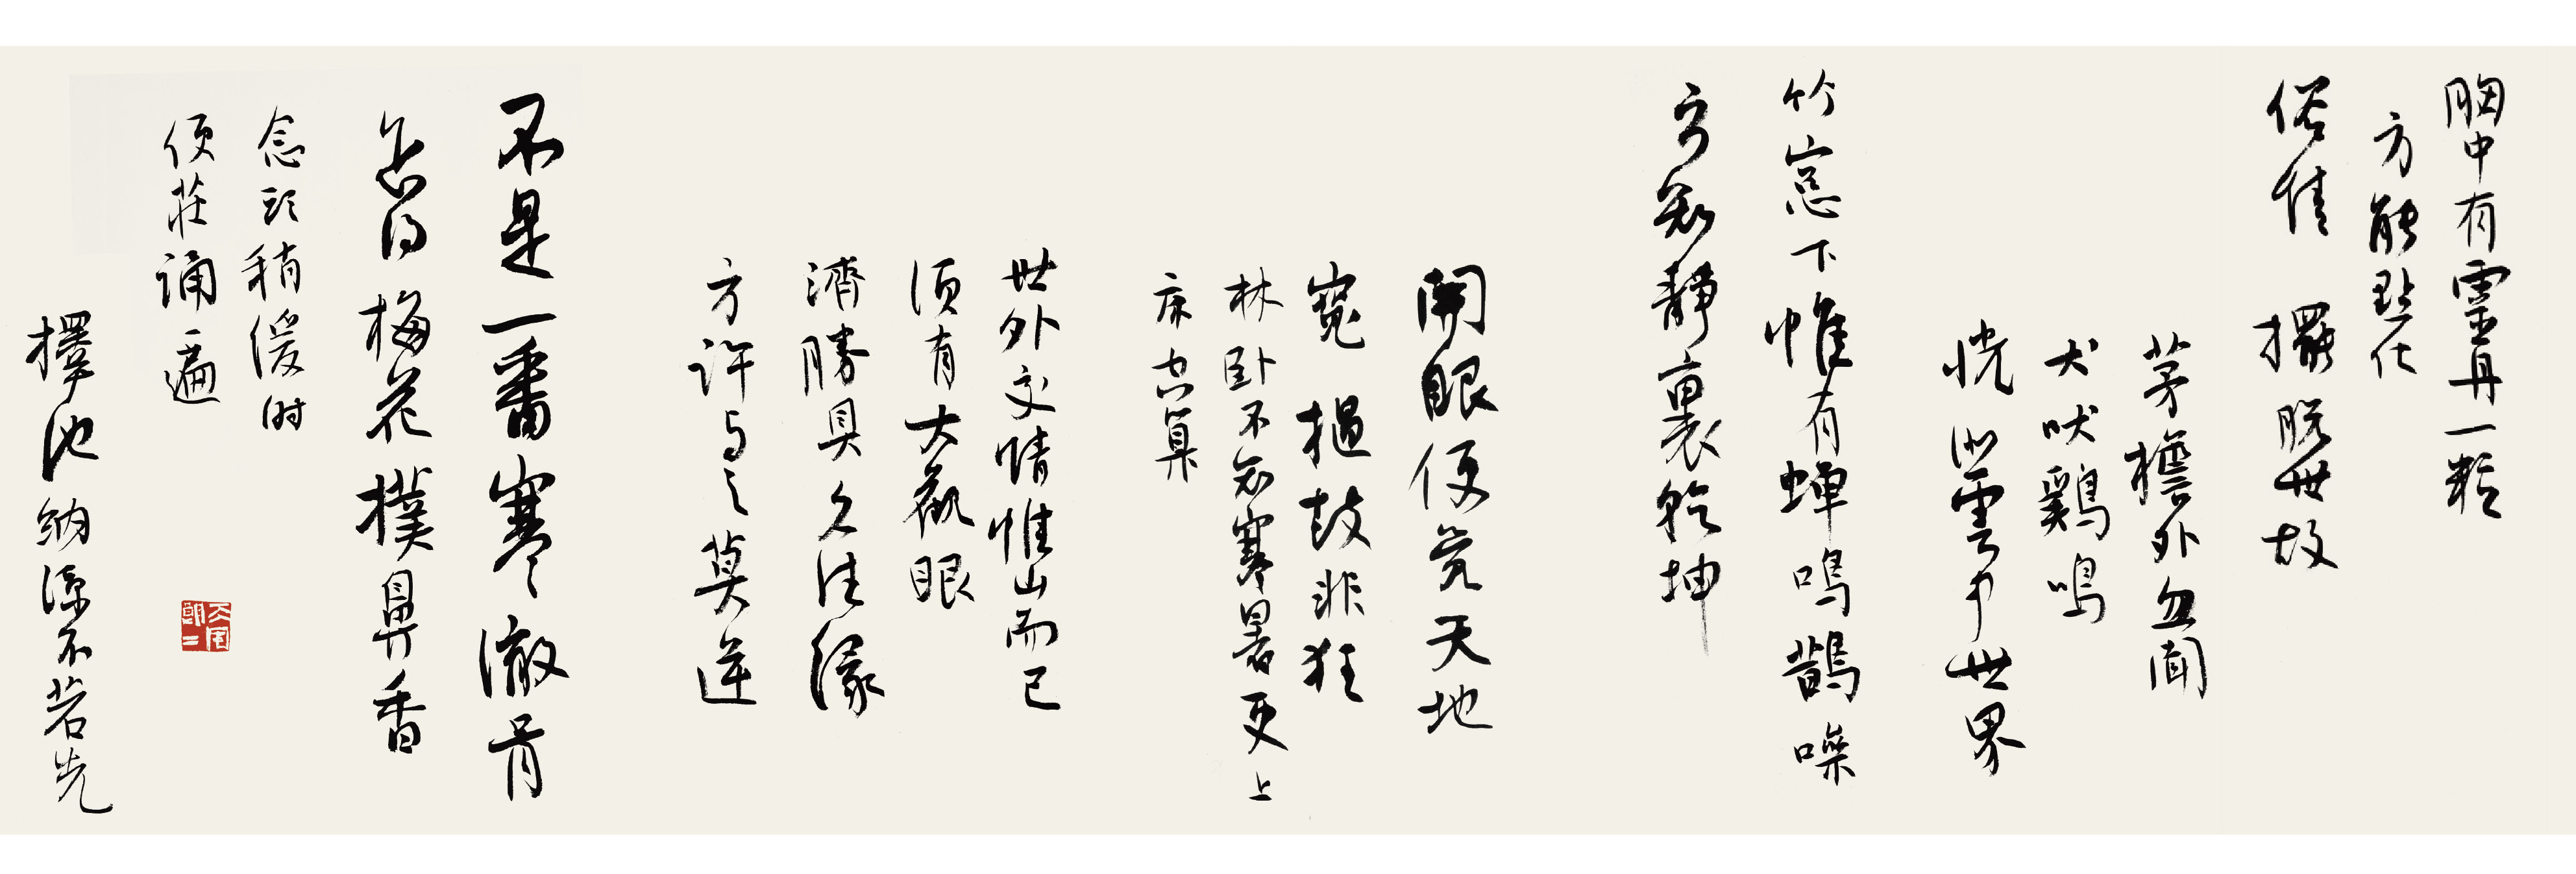 胸中有靈丹一粒
方能點化
俗情擺脫世故
茅檐外忽聞
犬吠鷄鳴
恍似雲中世界
竹窓下惟有蟬鳴鵲噪
方知靜裏乾坤
開眼便覚天地
寬撾鼓非狂
林卧不知寒暑更上
床空算
世外交情惟山而已
須有大觀眼
濟勝具久住緣
方許与之莫逆
不是一番寒徹骨
怎得梅花撲鼻香
念頭稍緩时
便莊誦一遍
擇池納涼不若先